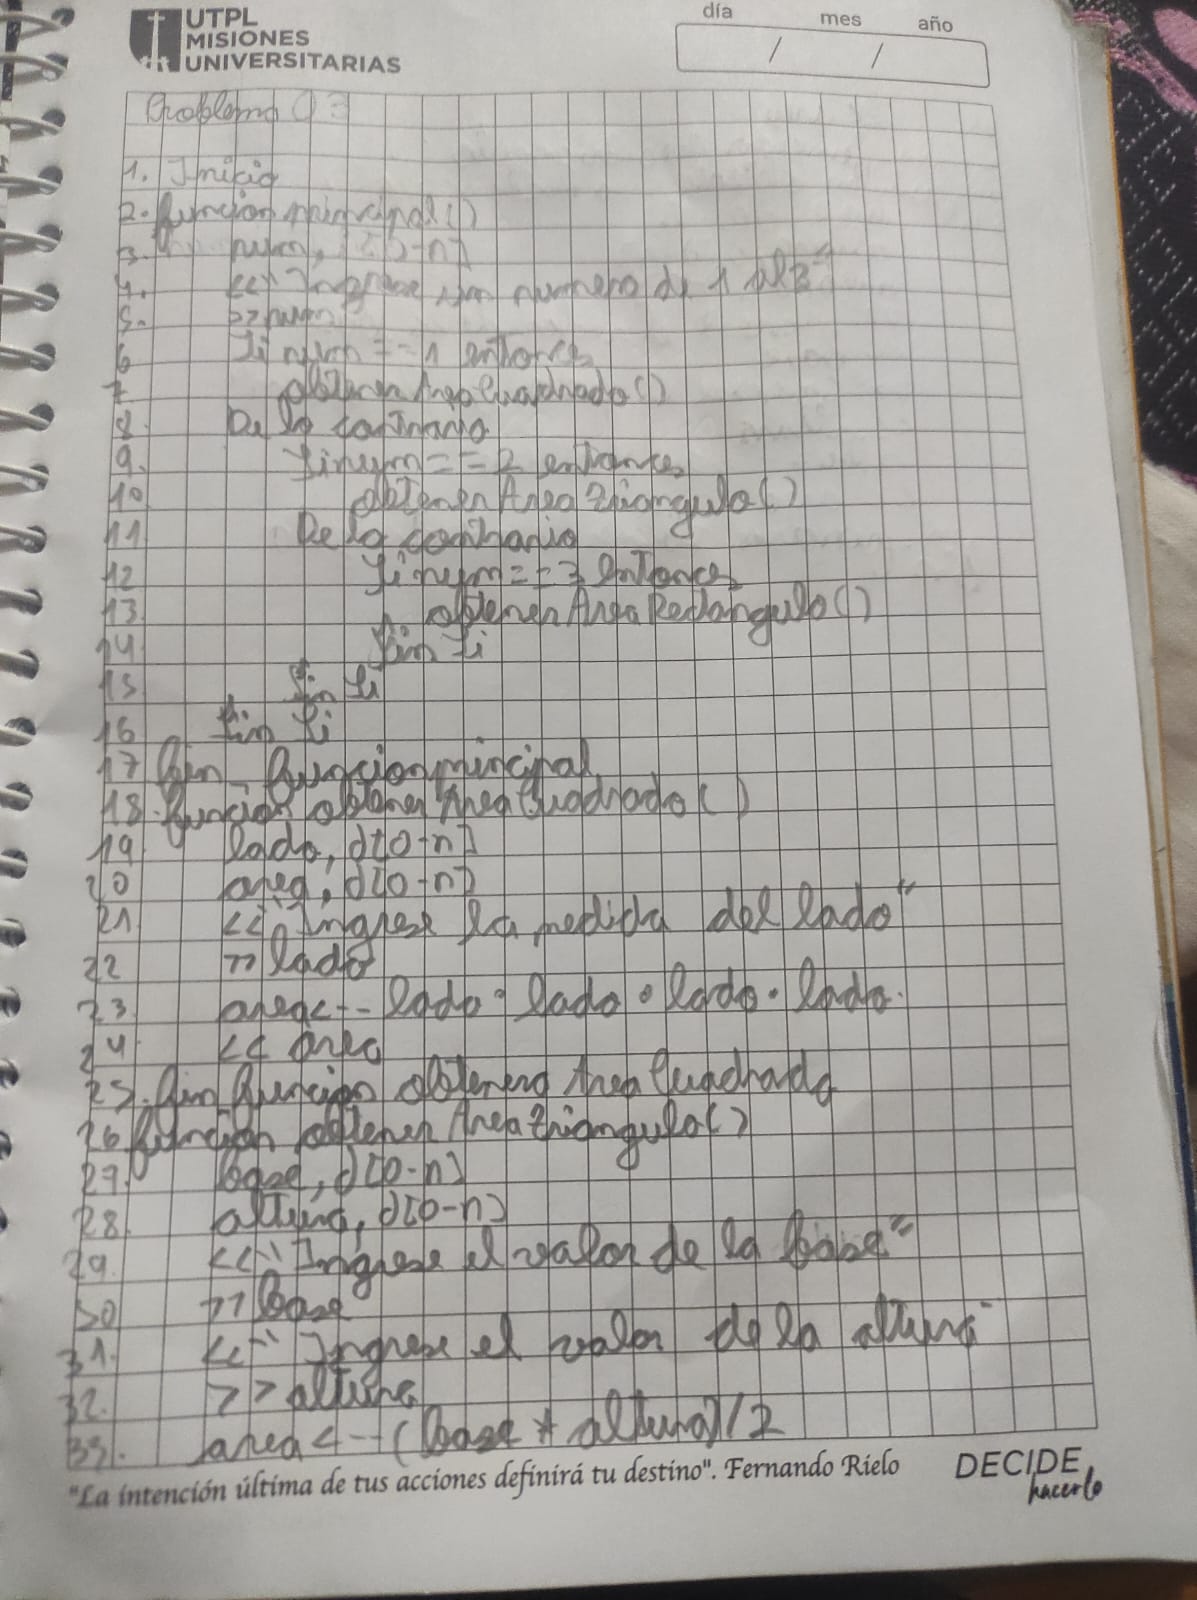 UTPL
MISIONES
UNIVERSITARIAS
día mes año
/ /
Problema 03
1. Inicio
2. función principal()
3. num, [0-n]
4. <<" Ingrese un numero de 1 al 3"
5. >> num
6 Si num == 1 entonces
7 obtenerAreaCuadrado()
8 De lo contrario
9. Si num == 2 entonces
10 obtenerAreaTriangulo()
11 De lo contrario
12 Si num == 3 entonces
13 obtenerAreaRectangulo()
14 fin Si
15 fin Si
16 fin Si
17 fin_funcion principal
18. función obtenerAreaCuadrado()
19 lado, d[0-n]
20 area, d[0-n]
21 <<" Ingrese la medida del lado"
22 >> lado
23 area<-- lado * lado * lado * lado.
24 << area
25. fin función obtenera AreaCuadrado
26 función obtenerAreaTriangulo()
27. base, d[0-n]
28. altura, d[0-n]
29. <<" Ingrese el valor de la base"
30 >> base
31. <<" Ingrese el valor de la altura"
32. >> altura
33. area<--(base * altura)/2
"La intención última de tus acciones definirá tu destino". Fernando Rielo
DECIDE
hacerlo